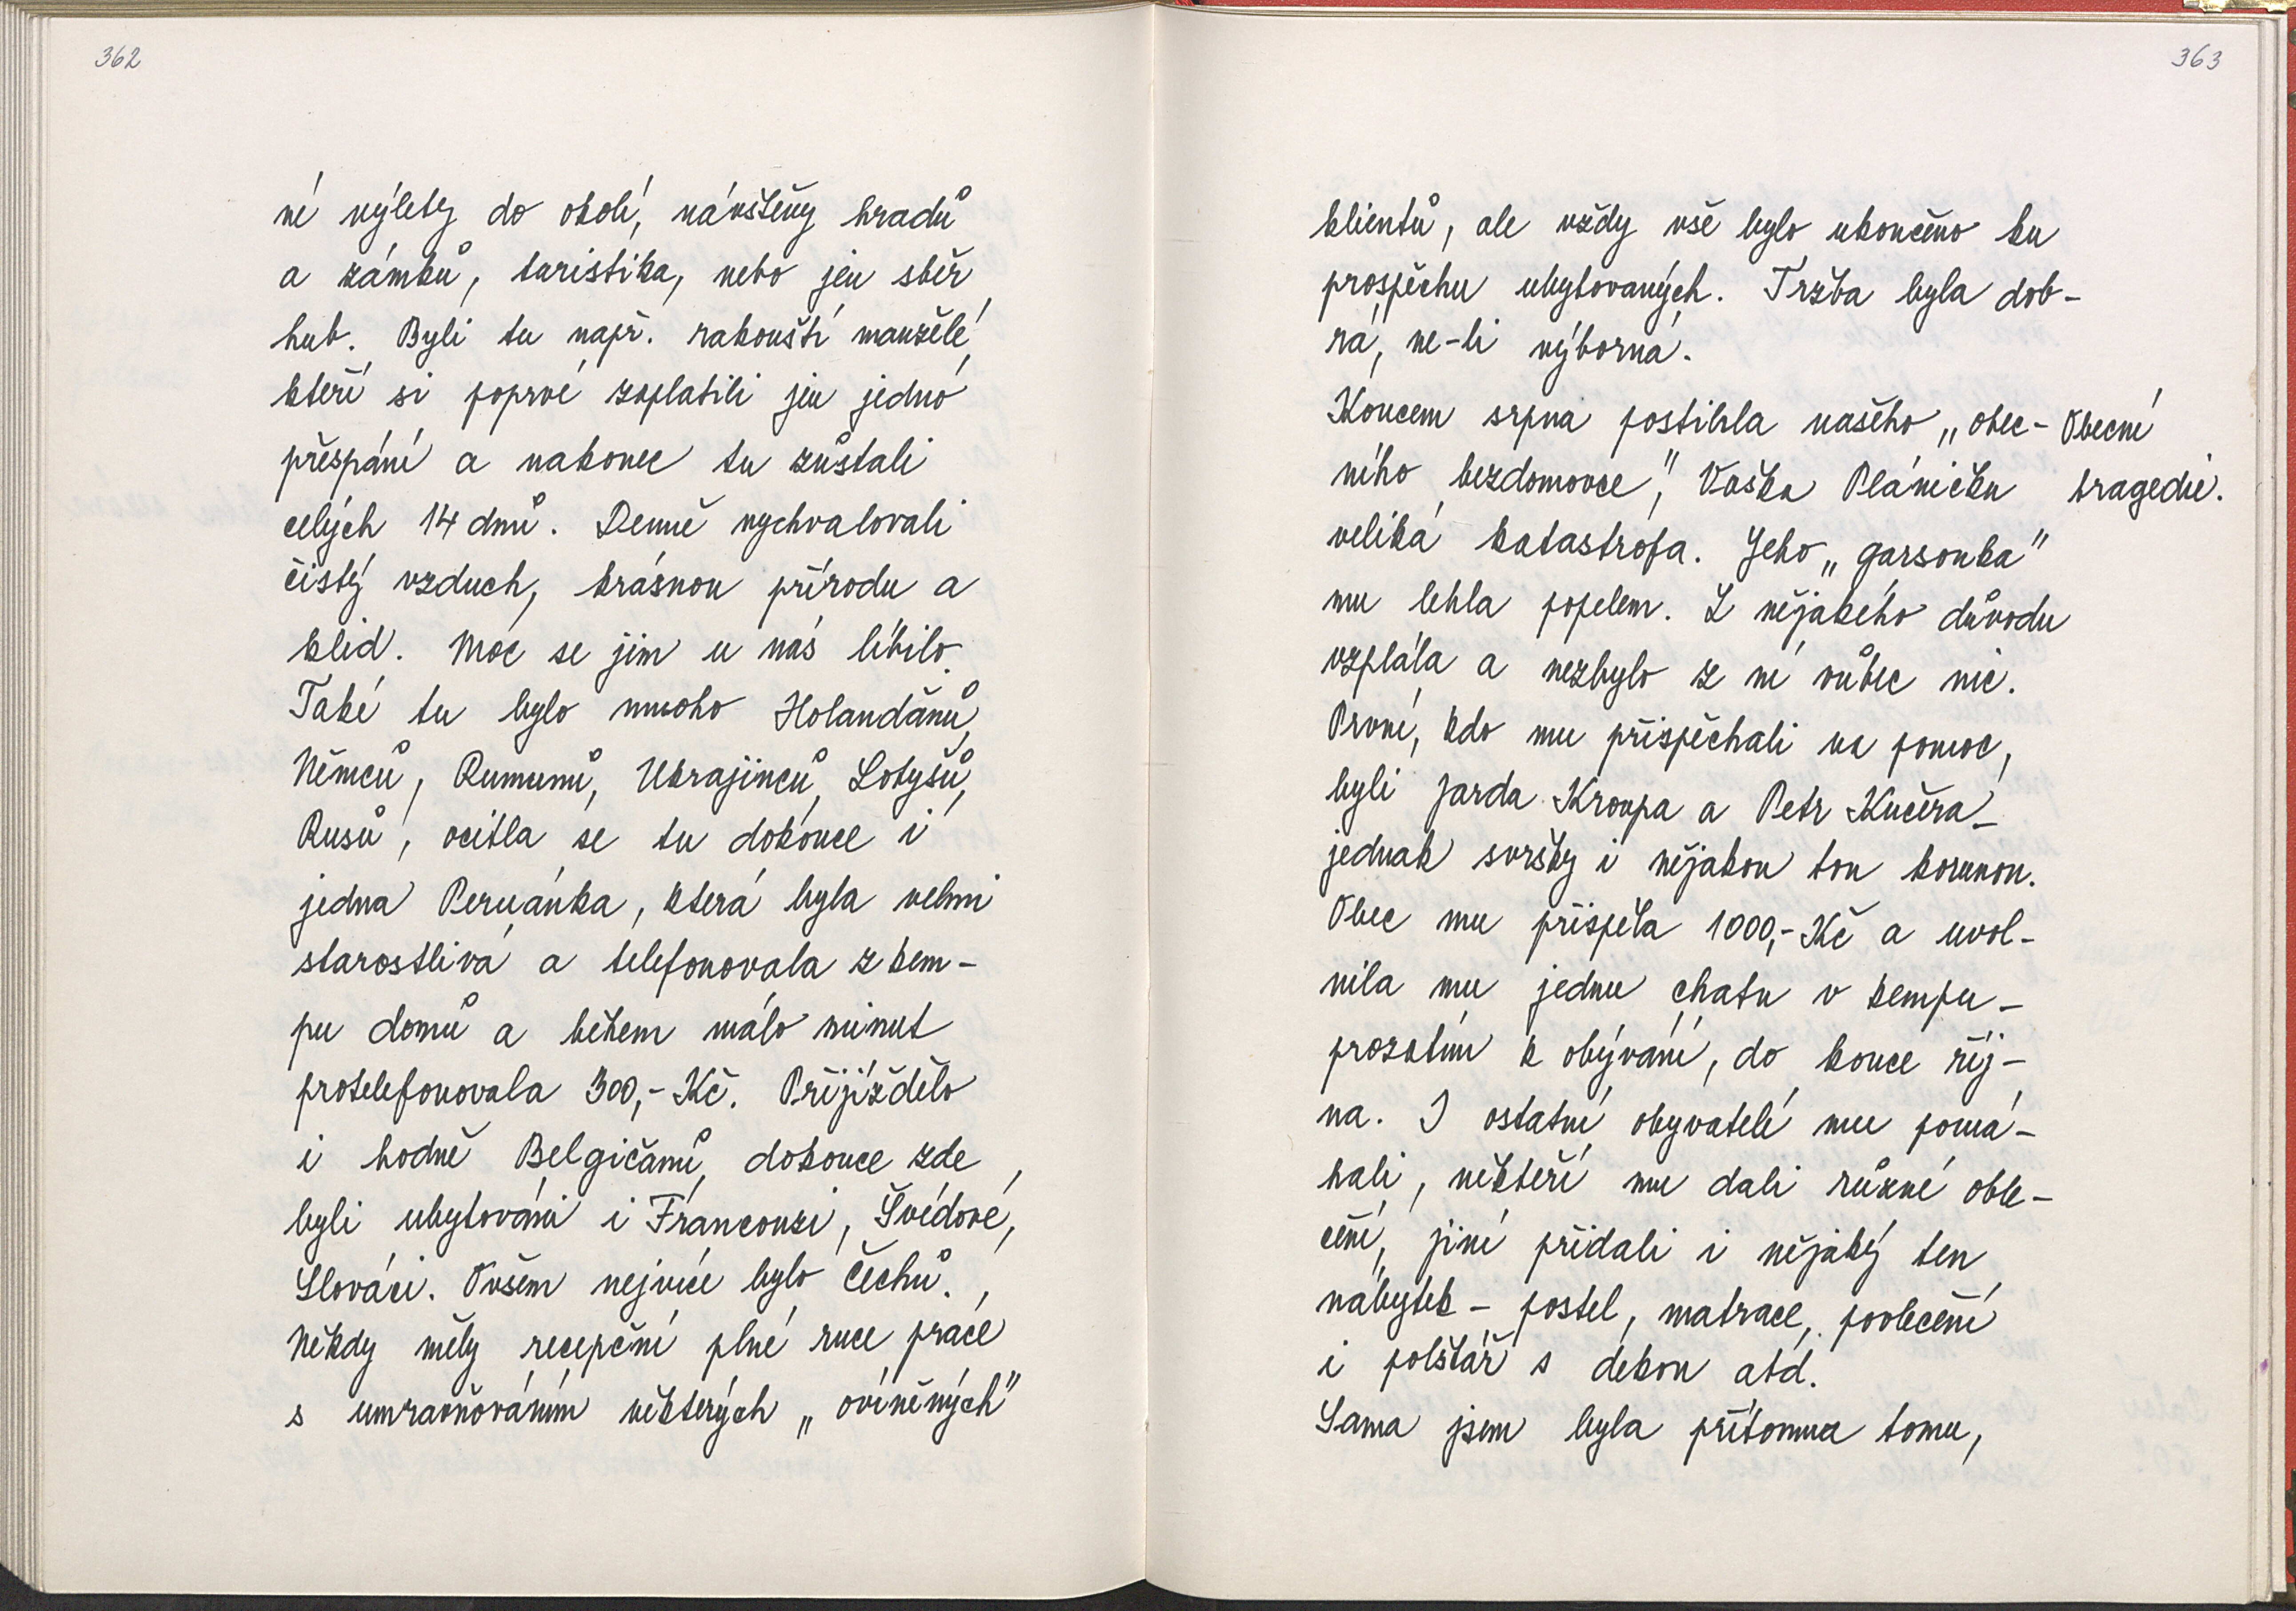 362
né výlety do okolí, návštěvy hradů
a zámků, turistika, nebo jen sběr
hub. Byli tu např. rakouští manželé,
kteří si poprvé zaplatili jen jedno
přespání a nakonec tu zůstali
celých 14 dnů. Denně vychvalovali
čistý vzduch, krásnou přírodu a
klid. Moc se jim u nás líbilo.
Také tu bylo mnoho Holanďanů,
Němců, Rumunů, Ukrajinců, Lotyšů,
Rusů, ocitla se tu dokonce i
jedna Peruánka, která byla velmi
starostlivá a telefonovala z kem-
pu domů a během málo minut
protelefonovala 300,- Kč. Přijíždělo
i hodně Belgičanů, dokonce zde
byli ubytováni i Francouzi, Švédové,
Slováci. Ovšem nejvíce bylo Čechů.
Někdy měly recepční plné ruce práce
s umravňováním některých „oviněných"
363
klientů, ale vždy vše bylo ukončeno ku
prospěchu ubytovaných. Tržba byla dob-
rá, ne-li výborná.
Koncem srpna postihla našeho „obec-
ního bezdomovce", Vaška Pláničku
veliká katastrofa. Jeho „garsonka"
mu lehla popelem. Z nějakého důvodu
vzplála a nezbylo z ní vůbec nic.
První, kdo mu přispěchali na pomoc,
byli Jarda Kroupa a Petr Kučera -
jednak svršky i nějakou tou korunou.
Obec mu přispěla 1000,- Kč a uvol-
nila mu jednu chatu v kempu -
prozatím k obývání, do konce říj-
na. I ostatní obyvatelé mu pomá-
hali, někteří mu dali různé oble-
čení, jiní přidali i nějaký ten
nábytek - postel, matrace, povlečení
i polštář s dekou atd.
Sama jsem byla přítomna tomu,
Obecní
tragedie.